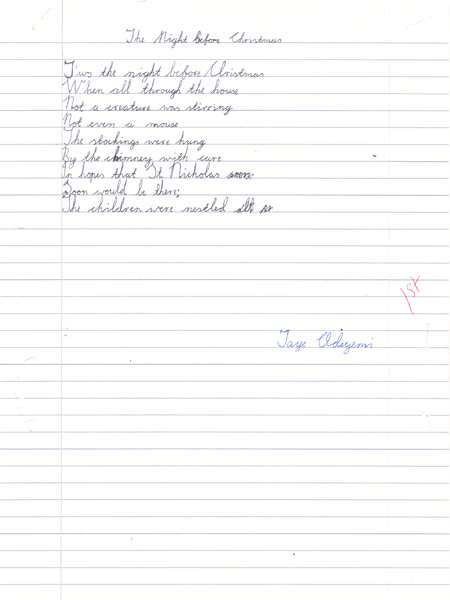 The Night before Christmas
T'was the night before Christmas
When all through the house
Not a creature was stirring
Not even a mouse
The stockings were hung
By the chimney with care
In hopes that St Nicholas soon
Soon would be there;
The children were nestled all
1st
Taye Adeyemi